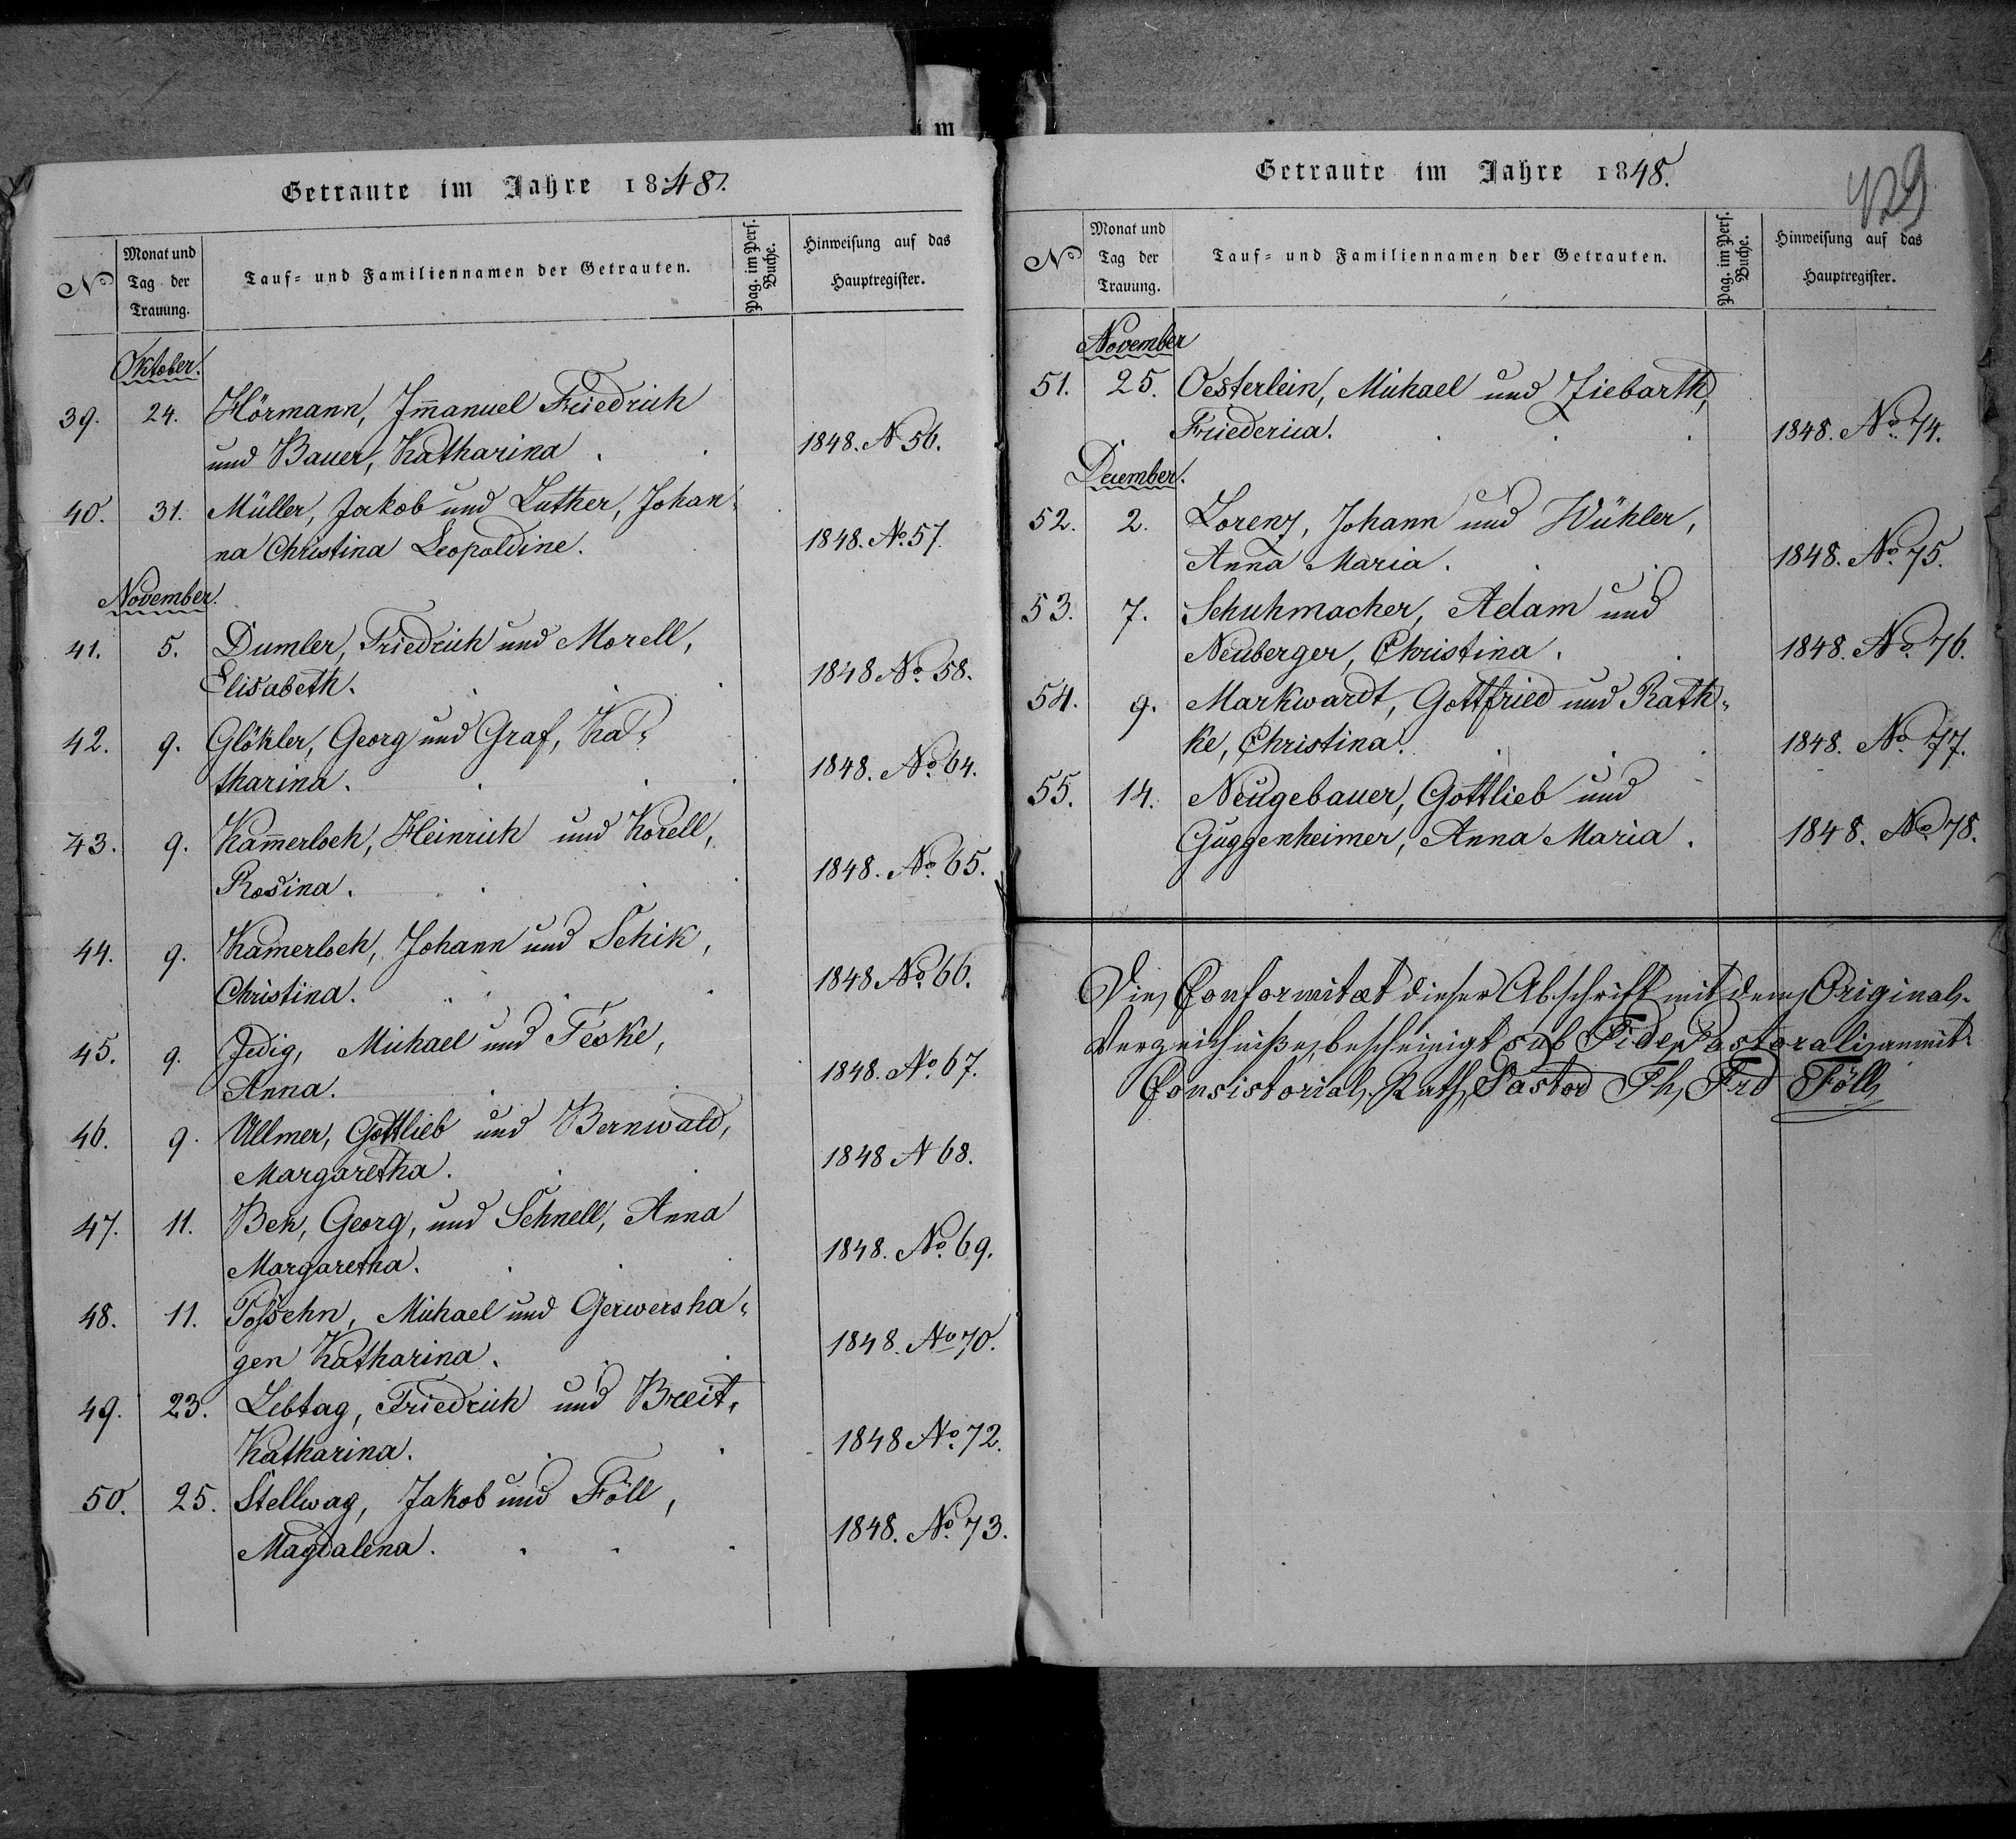 Getraute im Jahre 1848.
No
Monat und Tag der Trauung.
Tauf- und Familiennamen der Getrauten.
Pag. im Pers. Buche.
Hinweisung auf das Hauptregister.
Oktober.
39. 24. Hörmann, Im̄anuel Friedrich
und Bauer, Katharina . . 1848. N 56.
40. 31. Müller, Jakob und Luther, Johan-
na Christina Leopoldine. 1848. No. 57.
November.
41. 5. Dumler, Friedrich und Morell,
Elisabeth. 1848 No. 58.
42. 9. Glökler, Georg und Graf, Ka-
tharina. 1848. No. 64.
43. 9. Kam̄erloch, Heinrich und Korell,
Rosina. 1848. No. 65.
44. 9. Kam̄erloch, Johann und Schik,
Christina. 1848 No. 66.
45. 9. Jedig, Michael und Teske,
Anna. 1848. No. 67.
46. 9. Ullmer, Gottlieb und Bernwald,
Margaretha. 1848 N 68.
47. 11. Bek, Georg, und Schnell, Anna
Margaretha. 1848. No. 69.
48. 11. Possehn, Michael und Gerwersha-
gen Katharina. 1848. No 70.
49. 23. Lebtag, Friedrich und Breit,
Katharina. 1848 No. 72.
50. 25. Stellwag, Jakob und Föll,
Magdalena. 1848. No. 73.
Getraute im Jahre 1848.
429
No
Monat und Tag der Trauung.
Tauf- und Familiennamen der Getrauten.
Pag. im Pers. Buche.
Hinweisung auf das Hauptregister.
November
51. 25. Oesterlein, Michael und Ziebarth,
Friederica. 1848. No. 74.
December.
52. 2. Lorenz, Johann und Wühler,
Anna Maria. 1848. No. 75.
53. 7. Schuhmacher, Adam und
Neuberger, Christina. 1848. No. 76.
54. 9. Markwardt, Gottfried und Rath-
ke, Christina. 1848. No. 77.
55. 14. Neugebauer, Gottlieb und
Guggenheimer, Anna Maria. 1848. No. 78.
Die Conformitæt dieser Abschrift mit dem Original-
Verzeichniße, bescheinigt sub Fide Pastorali anmit
Consistorial-Rath, Pastor Fh, Frd Föll